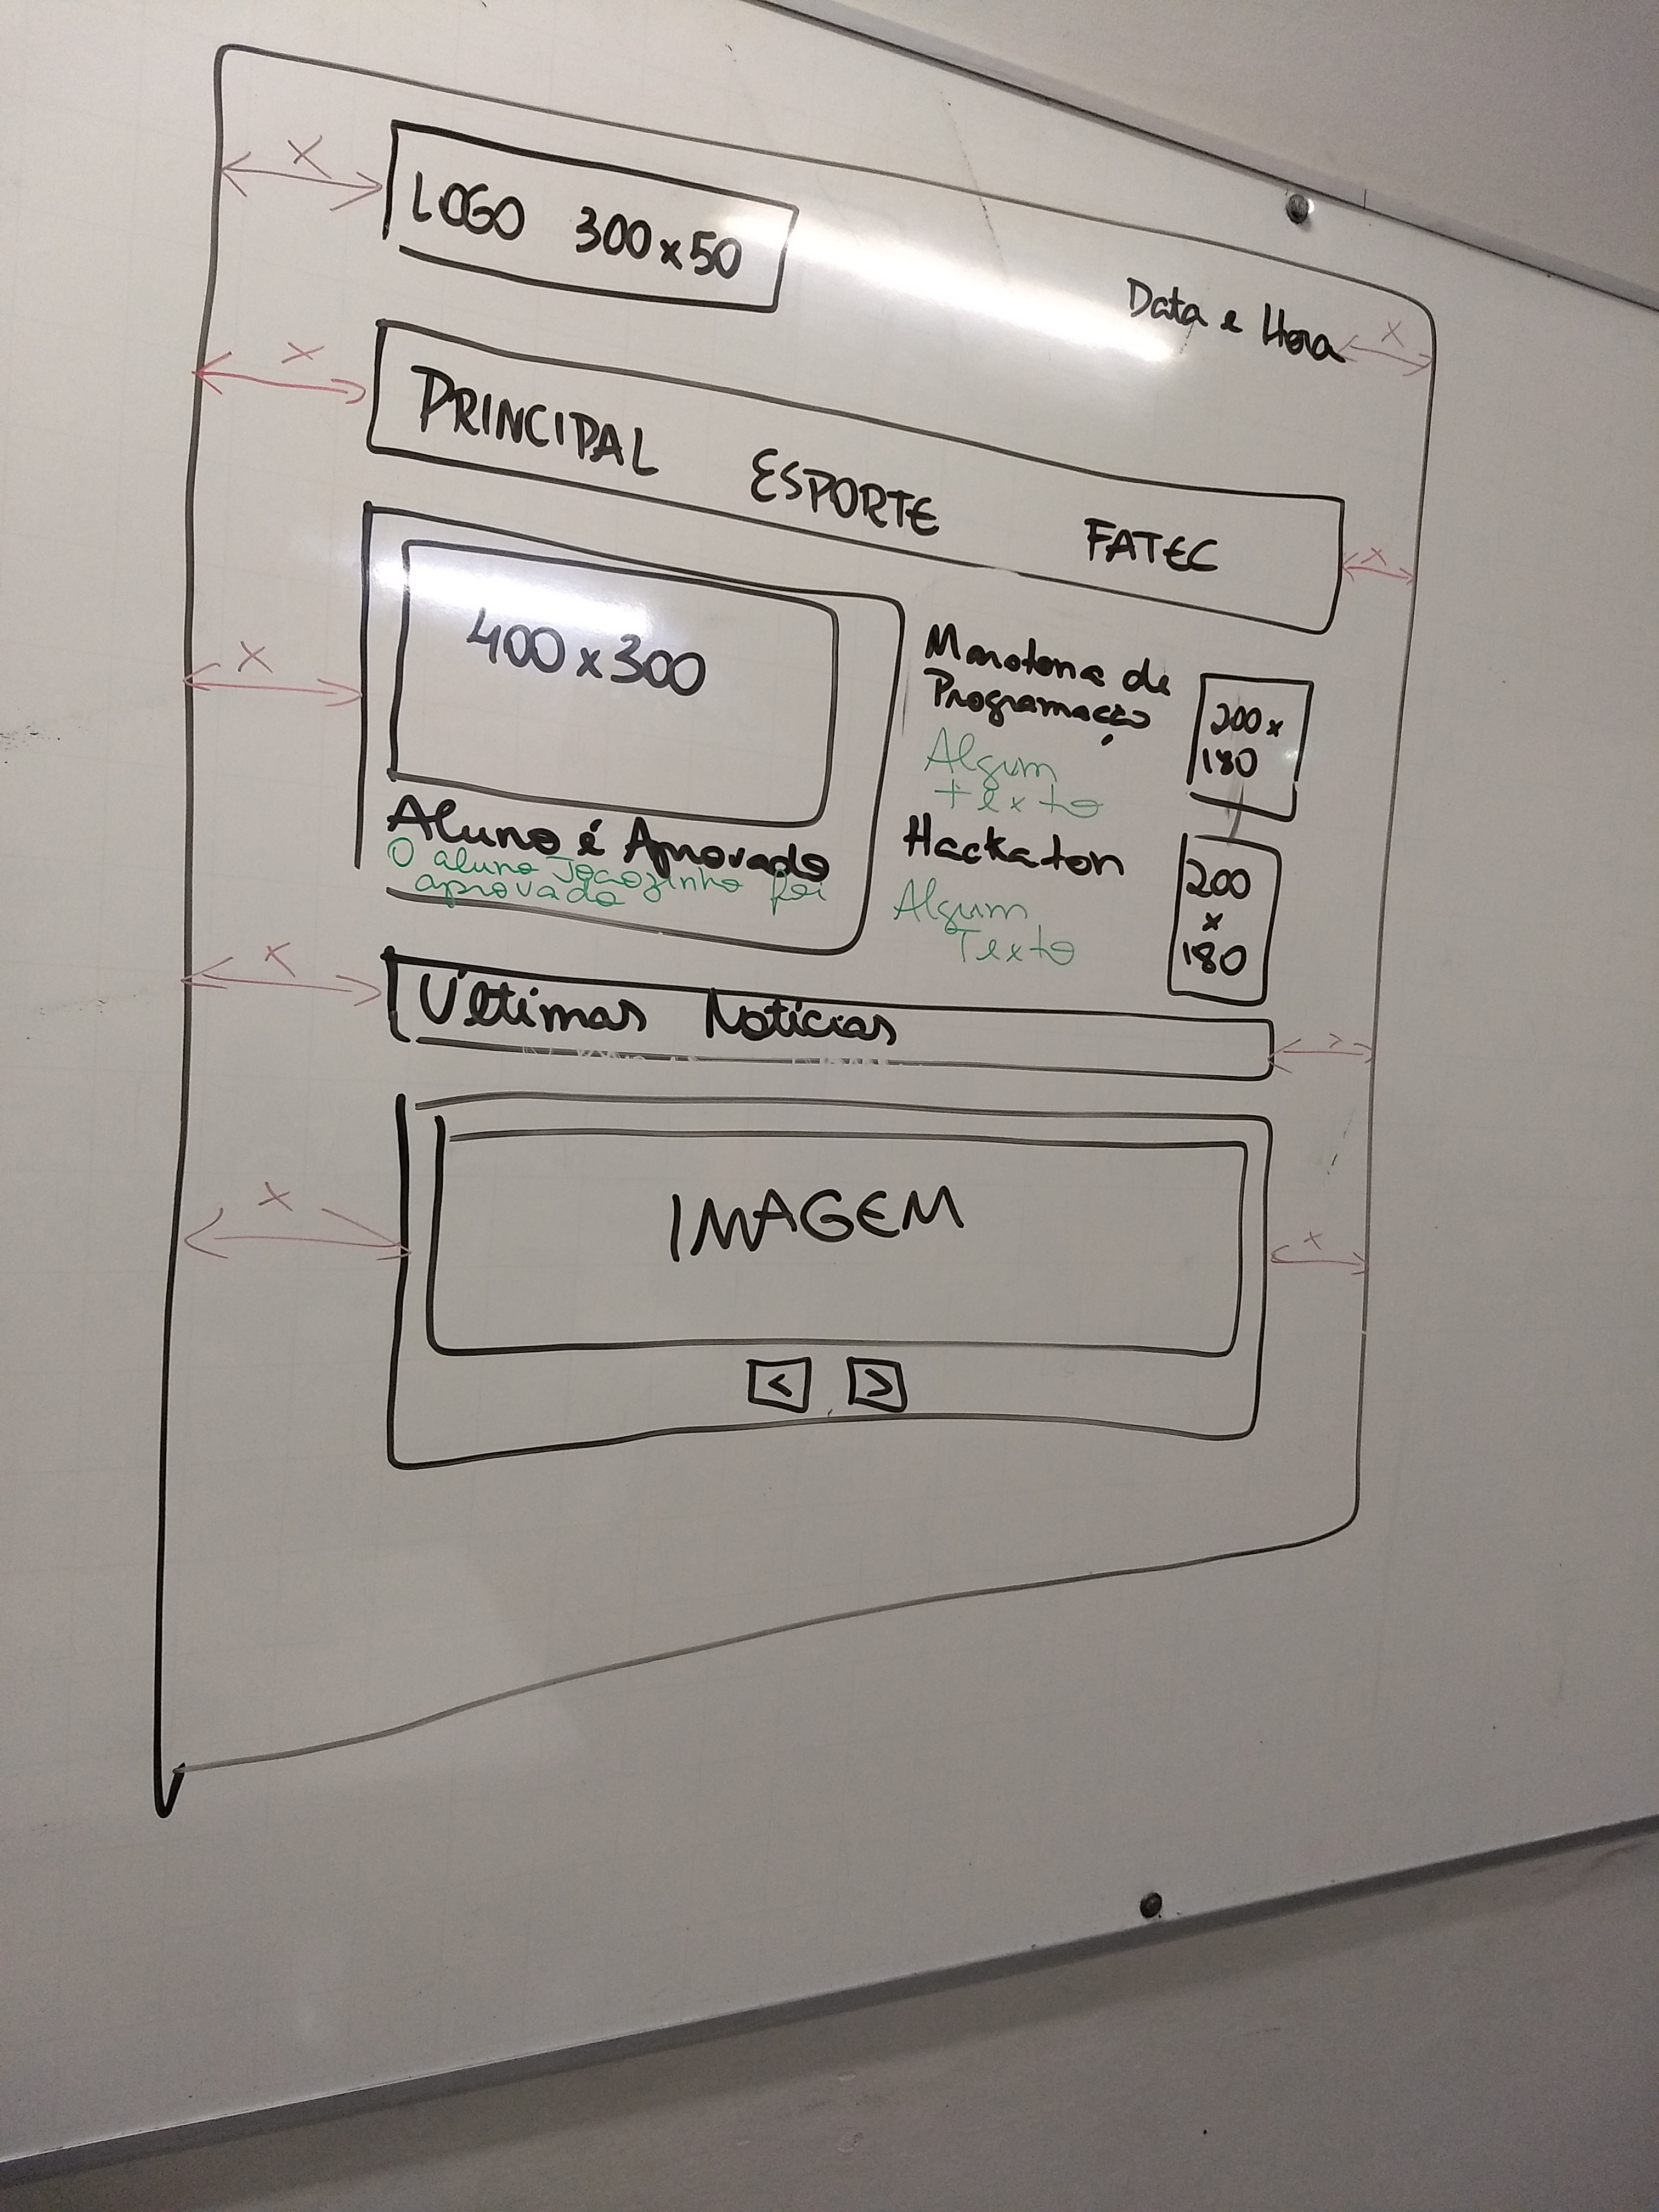 X
LOGO 300x50
Data e Hora
X
X
PRINCIPAL ESPORTE FATEC
X
X
400x300
Aluno é Aprovado
O aluno Joaozinho foi
aprovado
Maratona de
Programação
Algum
texto
200x
180
Hackaton
Algum
Texto
200
x
180
X
Últimas Notícias
X
X
IMAGEM
X
< >